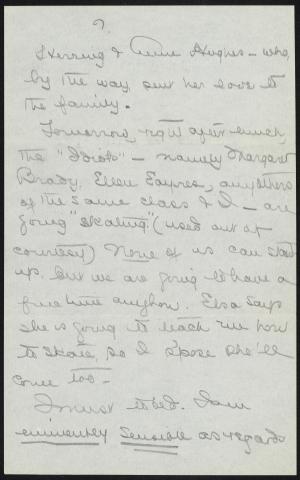 7.
Herring & Anne Hughes - who,
by the way, sent her love to
the family.
Tomorrow, right after lunch,
the "Idiots" - namely Margaret
Brady, Ellen Eayres, any others
of the same class & I - are
going "skating" (used out of
courtesy) None of us can stand
up. but we are going to have a
fine time anyhow. Elsa says
she is going to teach me how
to skate, so I spose she'll
come too -
I must to bed. I am
eminently sensible as regards